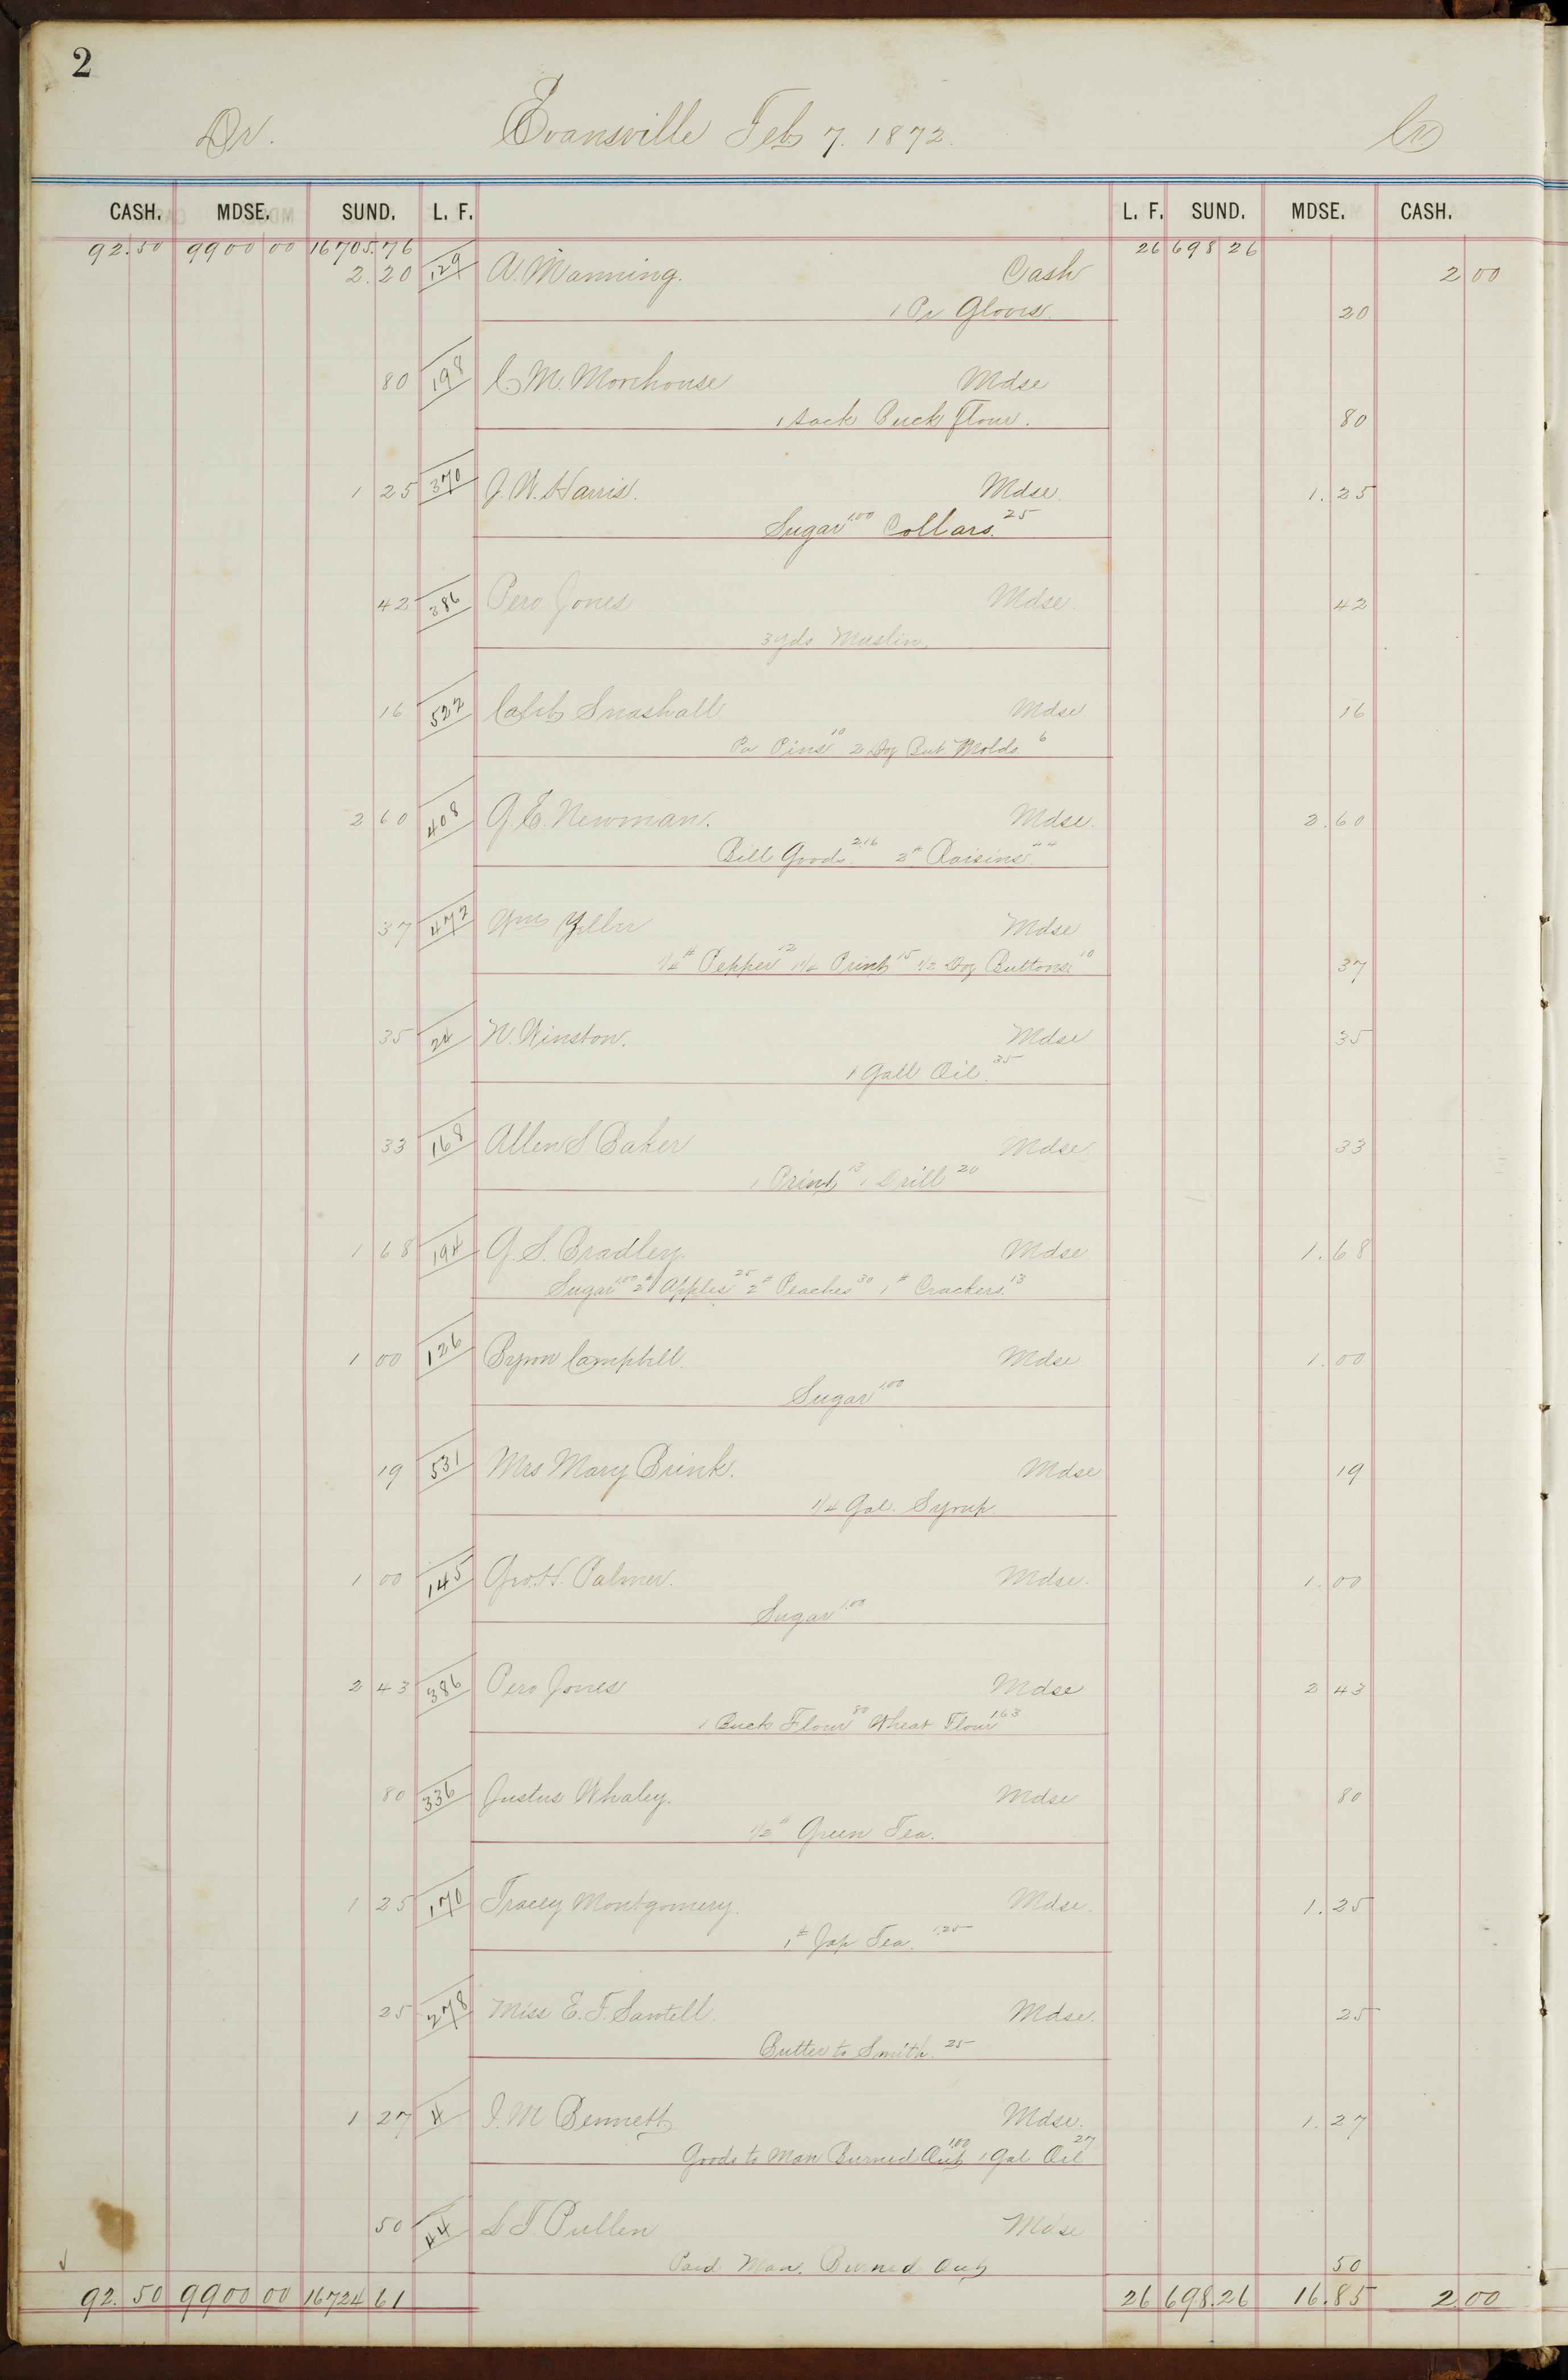 2
Dr. Evansville Feb 7. 1872. Cr
CASH. MDSE. SUND. L. F. L. F. SUND. MDSE. CASH.
92.50 9900 00 16705.76 26 698 26
2.20 129 A. Manning. Cash 2 00
1 Pr Gloves. 20
80 198 C. M. Morehouse Mdse
1 sack Buck Flour. 80
1 25 370 J. W. Harris. Mdse. 1.25
Sugar 1.00 Collars. 25
42 386 Pero Jones Mdse. 42
3 yds Muslin.
16 522 Caleb Snashall Mdse. 16
Pa Pins 10 2 Doz But. Molds 6
2 60 408 G. E. Newman. Mdse. 2.60
Bill Goods. 2.16 2# Raisins 44
37 472 Wm Yeller Mdse
1/4# Pepper 12 1 1/4 Print 15 1/2 Doz Buttons 10 37
35 24 N. Winston. Mdse 35
1 Gall Oil. 35
33 168 Allen S Baker Mdse. 33
1 Print 13 1 Drill 20
1 68 194 G. S. Bradley. Mdse 1.68
Sugar 1.00 2# Apples 25 2# Peaches 30 1# Crackers. 13
1 00 126 Byron Campbell. Mdse. 1.00
Sugar 1.00
19 531 Mrs Mary Brink. Mdse 19
1/4 Gal. Syrup.
1 00 145 Geo. H. Palmer. Mdse. 1.00
Sugar 1.00
2 43 386 Pero Jones Mdse 2 43
1 Buck Flour 80 Wheat Flour 1.63
80 336 Justus Whaley. Mdse 80
1/2# Green Tea.
1 25 170 Tracey Montgomery. Mdse. 1.25
1# Jap Tea. 1.25
25 278 Miss E. F. Sawtell. Mdse. 25
Butter to Smith. 25
1 27 4 I. M Bennett Mdse. 1.27
Goods to Man Burned Out 1.00 1 Gal Oil 27
50 44 L T Pullen Mdse
Paid Man. Burned Out 50
92.50 9900 00 16724 61 26 698.26 16.85 2.00